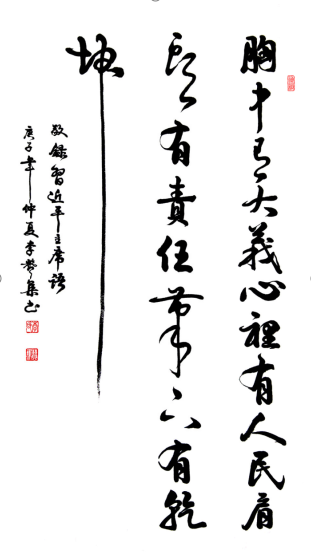 胸中有大義心裡有人民肩
頭有責任筆下有乾
坤
敬錄習近平主席語
庚子年仲夏李 集書